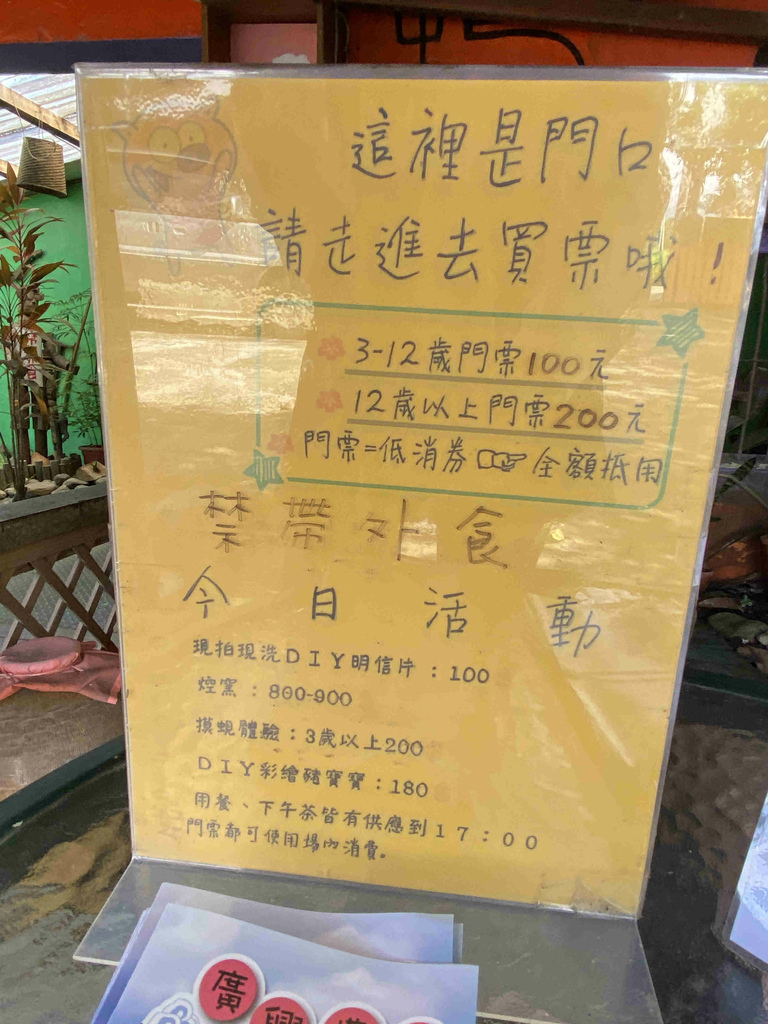 這裡是門口
請走進去買票哦！
3-12歲門票100元
12歲以上門票200元
門票=低消券☞全額抵用
禁帶外食
今日活動
現拍現洗ＤＩＹ明信片：100
焢窯：800-900
摸蜆體驗：3歲以上200
ＤＩＹ彩繪豬寶寶：180
用餐、下午茶皆有供應到１７：００
門票都可使用場內消費。
廣興